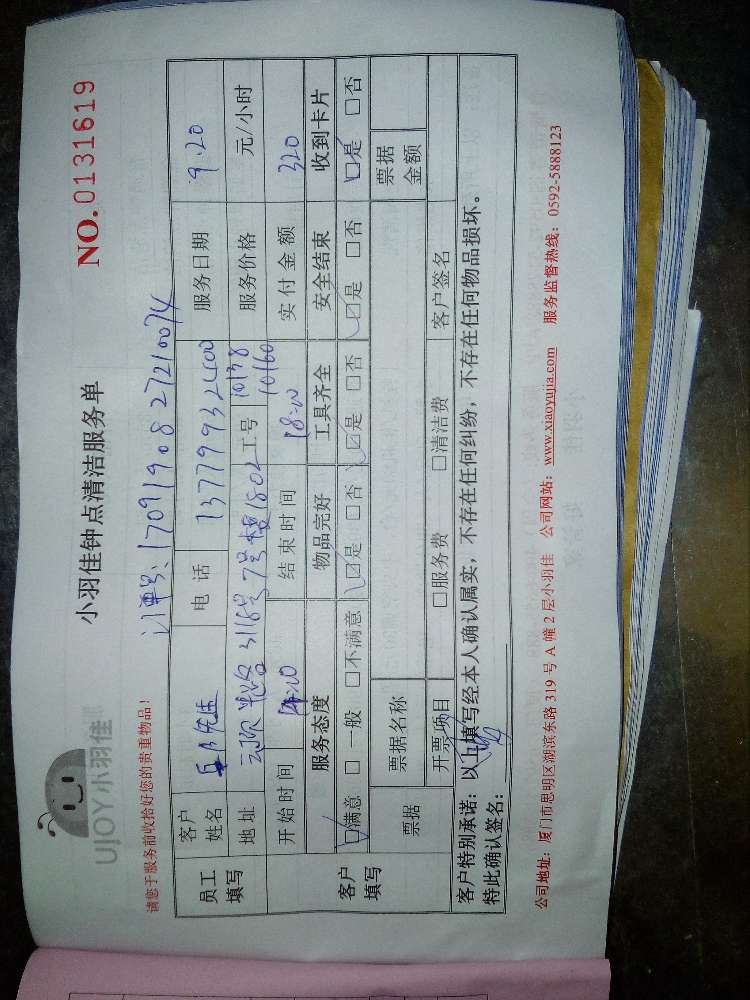 UJOY 小羽佳
小羽佳钟点清洁服务单
NO.0131619
请您于服务前收拾好您的贵重物品!
订单号:1709190827210074
员工填写
客户姓名 先生 电话 服务日期 9.20
地址 3118号7号楼1802 工号 10138 10160 服务价格 元/小时
开始时间 14:00 结束时间 18:00 实付金额 320
客户填写
服务态度 物品完好 工具齐全 安全结束 收到卡片
☑满意 □一般 □不满意 ☑是 □否 ☑是 □否 ☑是 □否 ☑是 □否
票据 票据名称 票据金额
开票项目 □服务费 □清洁费 客户签名
客户特别承诺:以上填写经本人确认属实,不存在任何纠纷,不存在任何物品损坏。
特此确认签名:
公司地址:厦门市思明区湖滨东路 319 号 A 幢 2 层小羽佳 公司网站:www.xiaoyujia.com 服务监督热线:0592-5888123